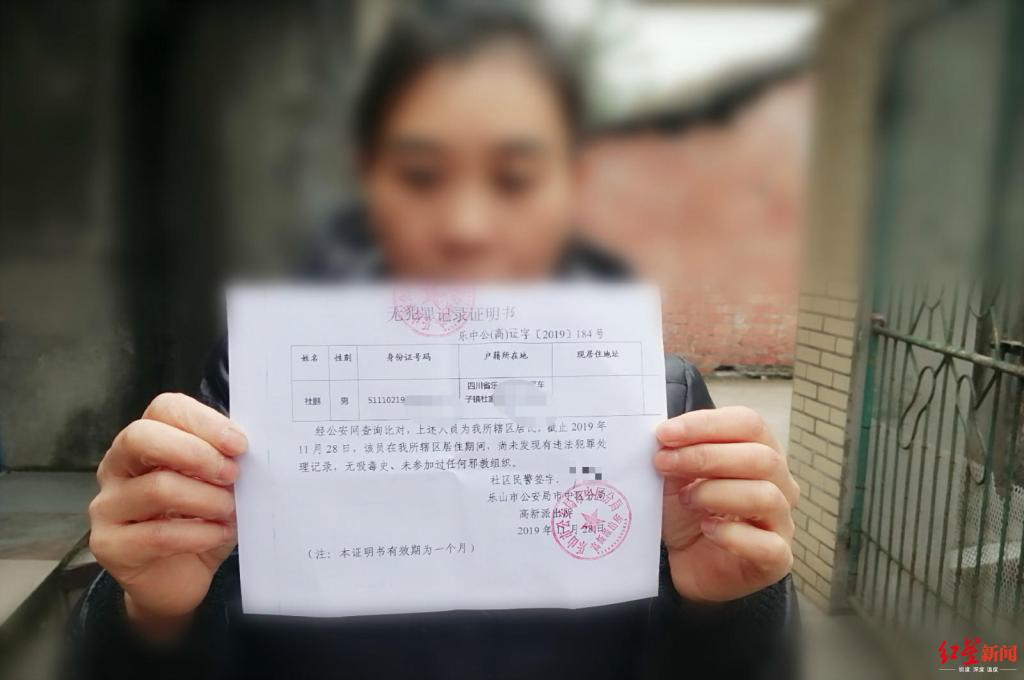 无犯罪记录证明书
乐中公(高)证字〔2019〕184号
姓名 性别 身份证号码 户籍所在地 现居住地址
四川省乐 车
杜 男 51110219 子镇杜家
经公安网查询比对,上述人员为我所辖区居民,截止2019年
11月28日,该员在我所辖区居住期间,尚未发现有违法犯罪处
理记录,无吸毒史、未参加过任何邪教组织。
社区民警签字:
乐山市公安局市中区分局
高新派出所
2019年11月28日
(注:本证明书有效期为一个月)
红星新闻
锐度 深度 温度